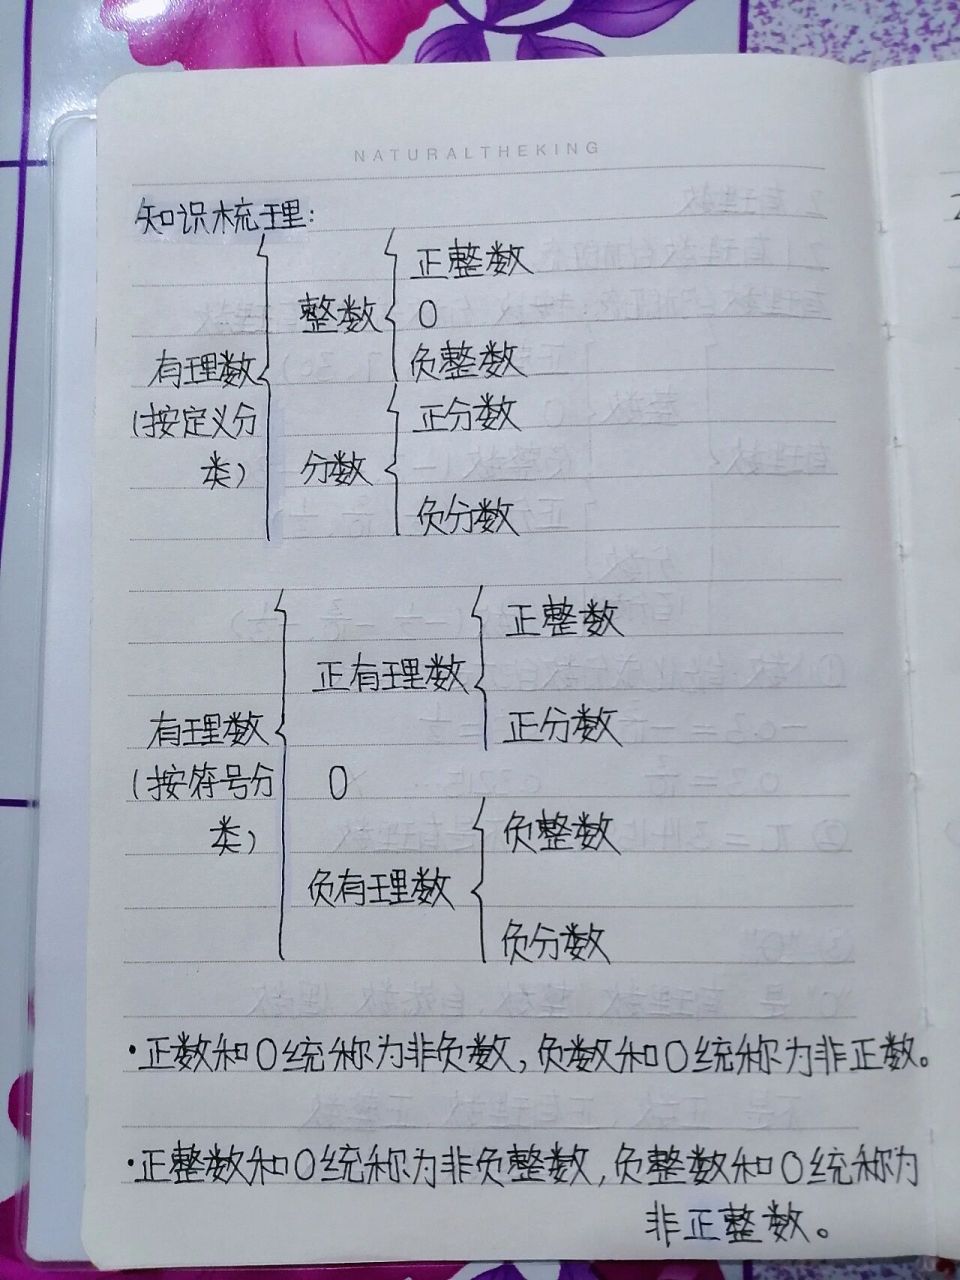 NATURALTHEKING
知识梳理:
正整数
整数 0
有理数 负整数
(按定义分 正分数
类) 分数
负分数
正整数
正有理数
有理数 正分数
(按符号分 0
类) 负整数
负有理数
负分数
·正数和0统称为非负数,负数和0统称为非正数。
·正整数和0统称为非负整数,负整数和0统称为
非正整数。